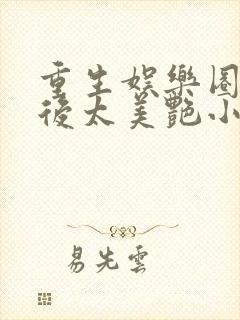 重生娛樂圈
後太美艷小
易先雲